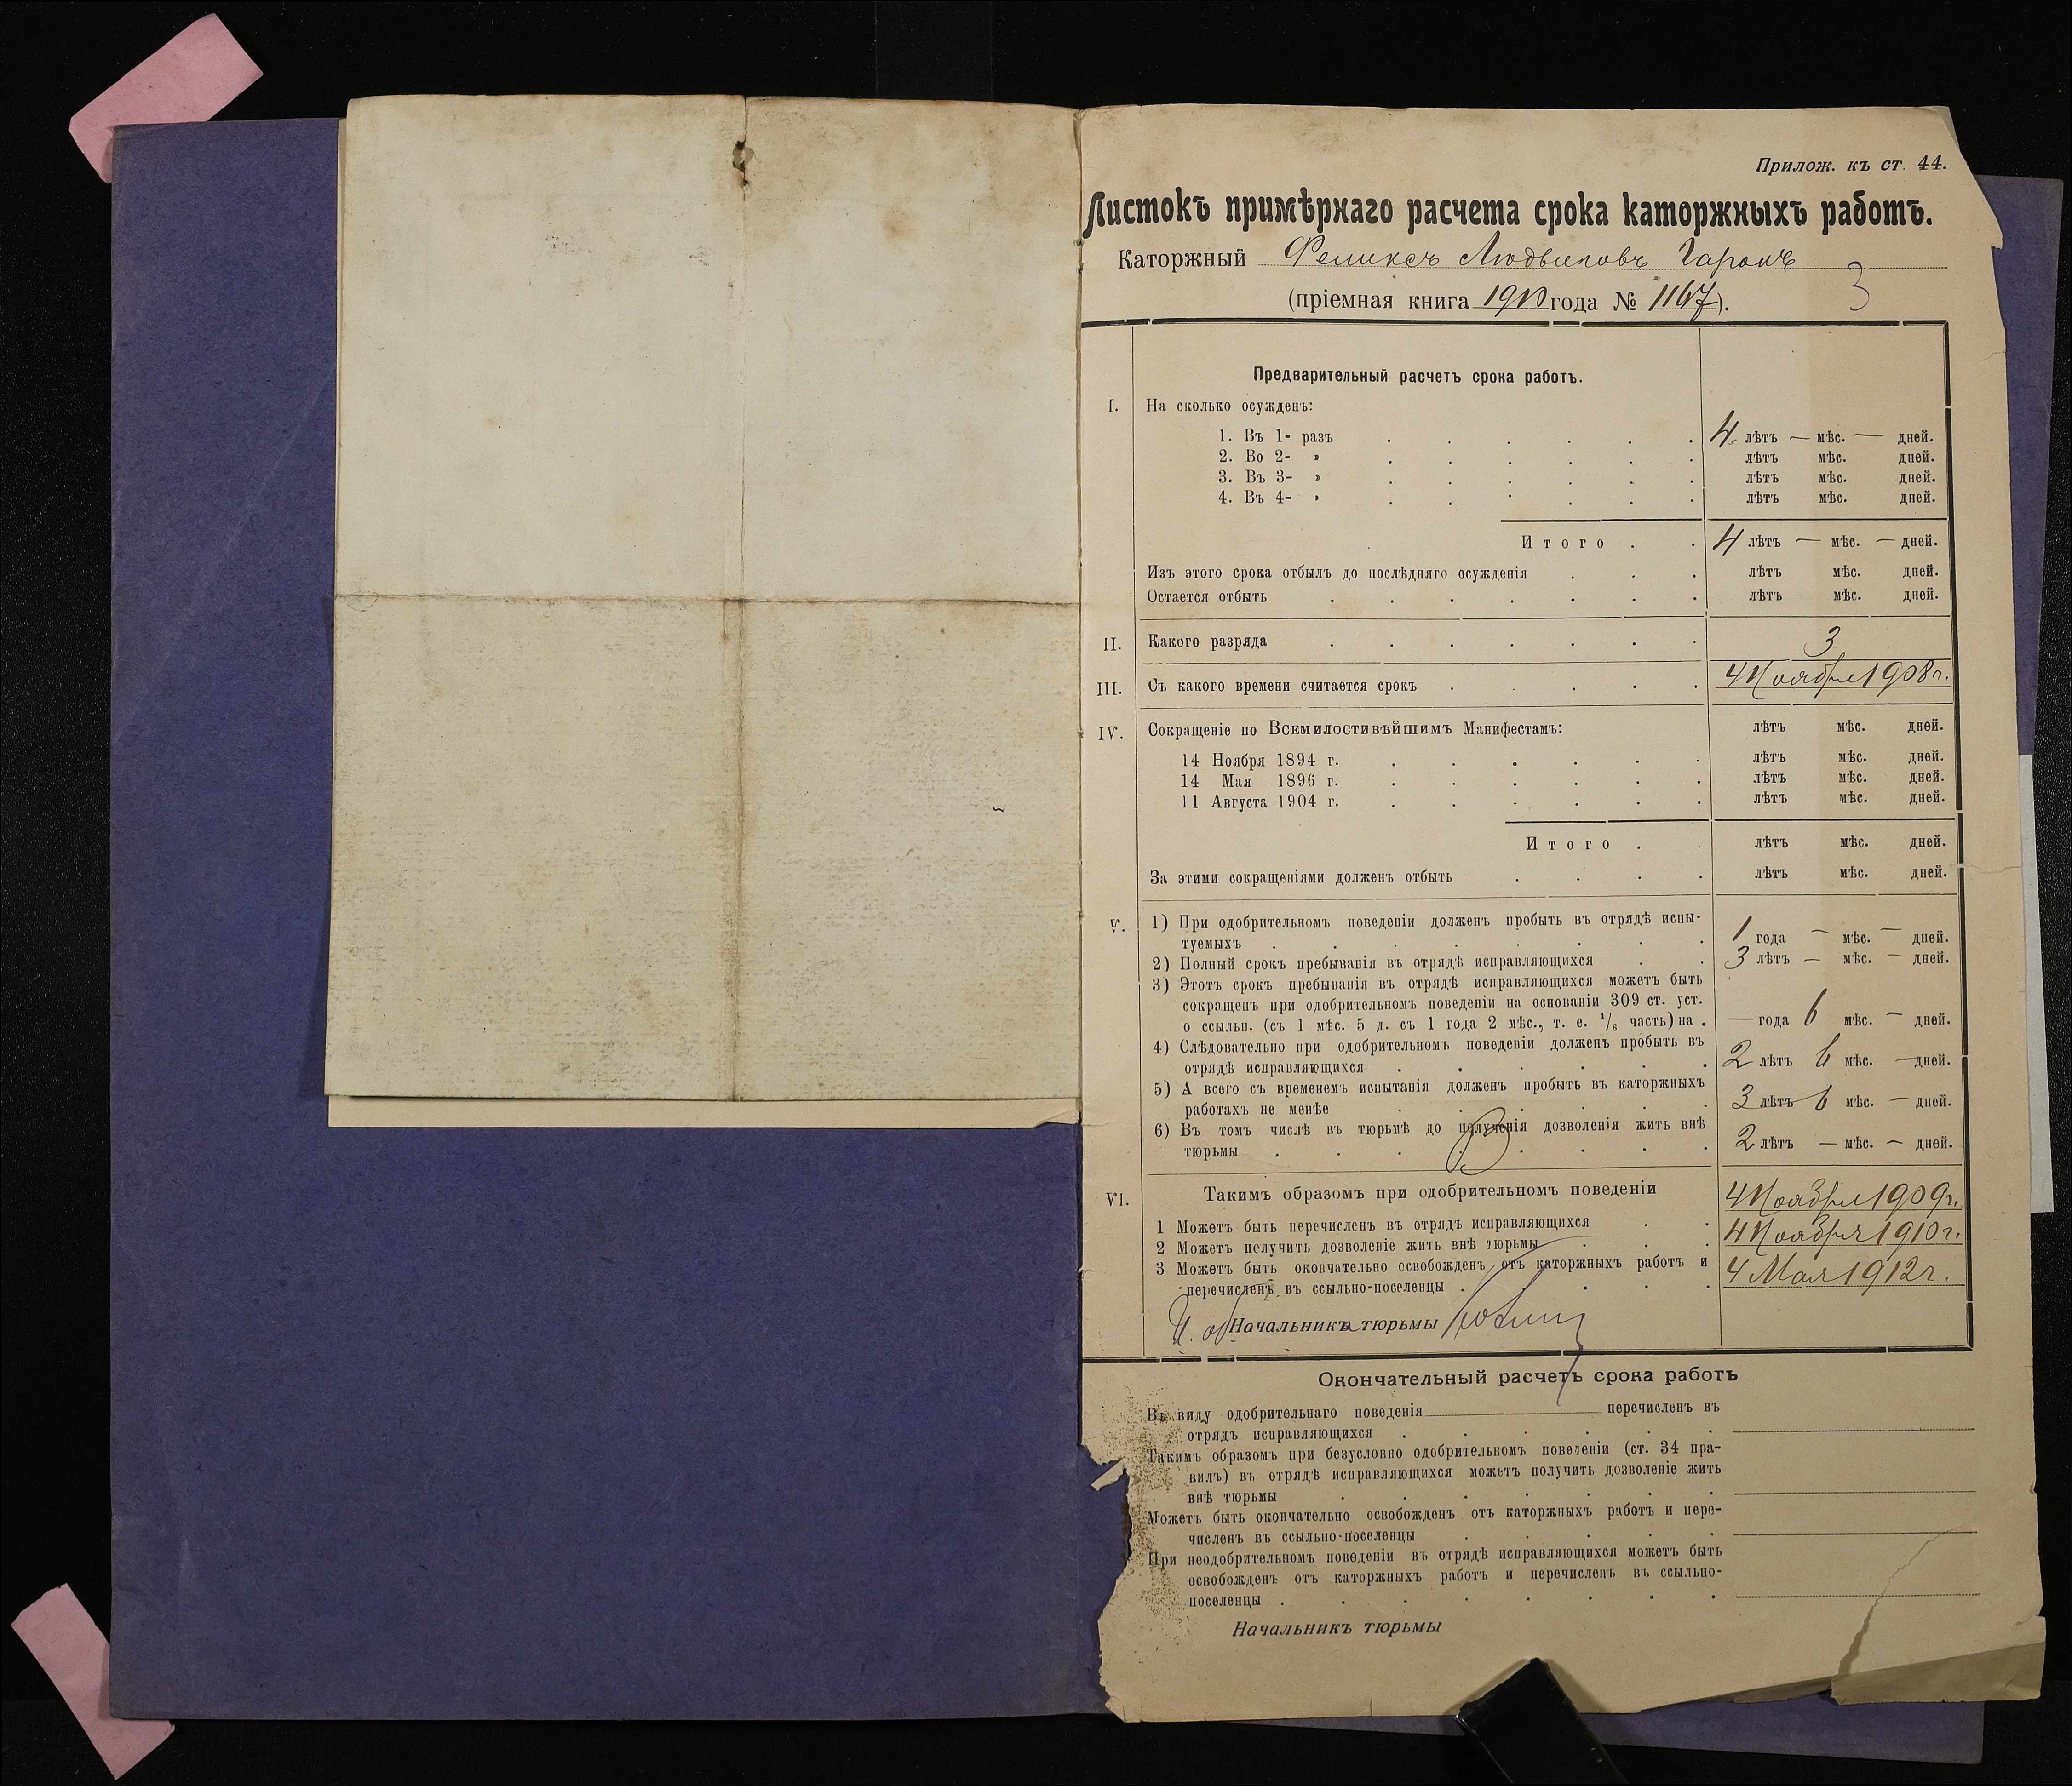 Прилож. къ ст. 44.
Листокъ примѣрнаго расчета срока каторжныхъ работъ.
Каторжный Феликсъ Людвиковъ
3
(пріемная книга 1910 года № 1167).
Предварительный расчетъ срока работъ.
I. На сколько осужденъ:
1. Въ 1- разъ 4 лѣтъ — мѣс. — дней.
2. Во 2- » лѣтъ мѣс. дней.
3. Въ 3- » лѣтъ мѣс. дней.
4. Въ 4- » лѣтъ мѣс. дней.
Итого 4 лѣтъ — мѣс. — дней.
Изъ этого срока отбылъ до послѣдняго осужденія лѣтъ мѣс. дней.
Остается отбыть лѣтъ мѣс. дней.
II. Какого разряда 3
III. Съ какого времени считается срокъ 4 Ноября 1908 г.
IV. Сокращеніе по Всемилостивѣйшимъ Манифестамъ: лѣтъ мѣс. дней.
14 Ноября 1894 г. лѣтъ мѣс. дней.
14 Мая 1896 г. лѣтъ мѣс. дней.
11 Августа 1904 г. лѣтъ мѣс. дней.
Итого лѣтъ мѣс. дней.
За этими сокращеніями долженъ отбыть лѣтъ мѣс. дней.
V. 1) При одобрительномъ поведеніи долженъ пробыть въ отрядѣ испы-
туемыхъ 1 года — мѣс. — дней.
2) Полный срокъ пребыванія въ отрядѣ исправляющихся 3 лѣтъ — мѣс. — дней.
3) Этотъ срокъ пребыванія въ отрядѣ исправляющихся можетъ быть
сокращенъ при одобрительномъ поведеніи на основаніи 309 ст. уст.
о ссыльн. (съ 1 мѣс. 5 д. съ 1 года 2 мѣс., т. е. 1/6 часть) на — года 6 мѣс. — дней.
4) Слѣдовательно при одобрительномъ поведеніи долженъ пробыть въ
отрядѣ исправляющихся 2 лѣтъ 6 мѣс. — дней.
5) А всего съ временемъ испытанія долженъ пробыть въ каторжныхъ
работахъ не менѣе 3 лѣтъ 6 мѣс. — дней.
6) Въ томъ числѣ въ тюрьмѣ до полученія дозволенія жить внѣ
тюрьмы 2 лѣтъ — мѣс. — дней.
VI. Такимъ образомъ при одобрительномъ поведеніи
1 Можетъ быть перечисленъ въ отрядъ исправляющихся 4 Ноября 1909 г.
2 Можетъ получить дозволеніе жить внѣ тюрьмы 4 Ноября 1910 г.
3 Можетъ быть окончательно освобожденъ отъ каторжныхъ работъ и
перечисленъ въ ссыльно-поселенцы 4 Мая 1912 г.
И. об. Начальника тюрьмы
Окончательный расчетъ срока работъ
Въ виду одобрительнаго поведенія перечисленъ въ
отрядъ исправляющихся
Такимъ образомъ при безусловно одобрительномъ поведеніи (ст. 34 пра-
вилъ) въ отрядѣ исправляющихся можетъ получить дозволеніе жить
внѣ тюрьмы
Можетъ быть окончательно освобожденъ отъ каторжныхъ работъ и пере-
численъ въ ссыльно-поселенцы
При неодобрительномъ поведеніи въ отрядѣ исправляющихся можетъ быть
освобожденъ отъ каторжныхъ работъ и перечисленъ въ ссыльно-
поселенцы
Начальникъ тюрьмы